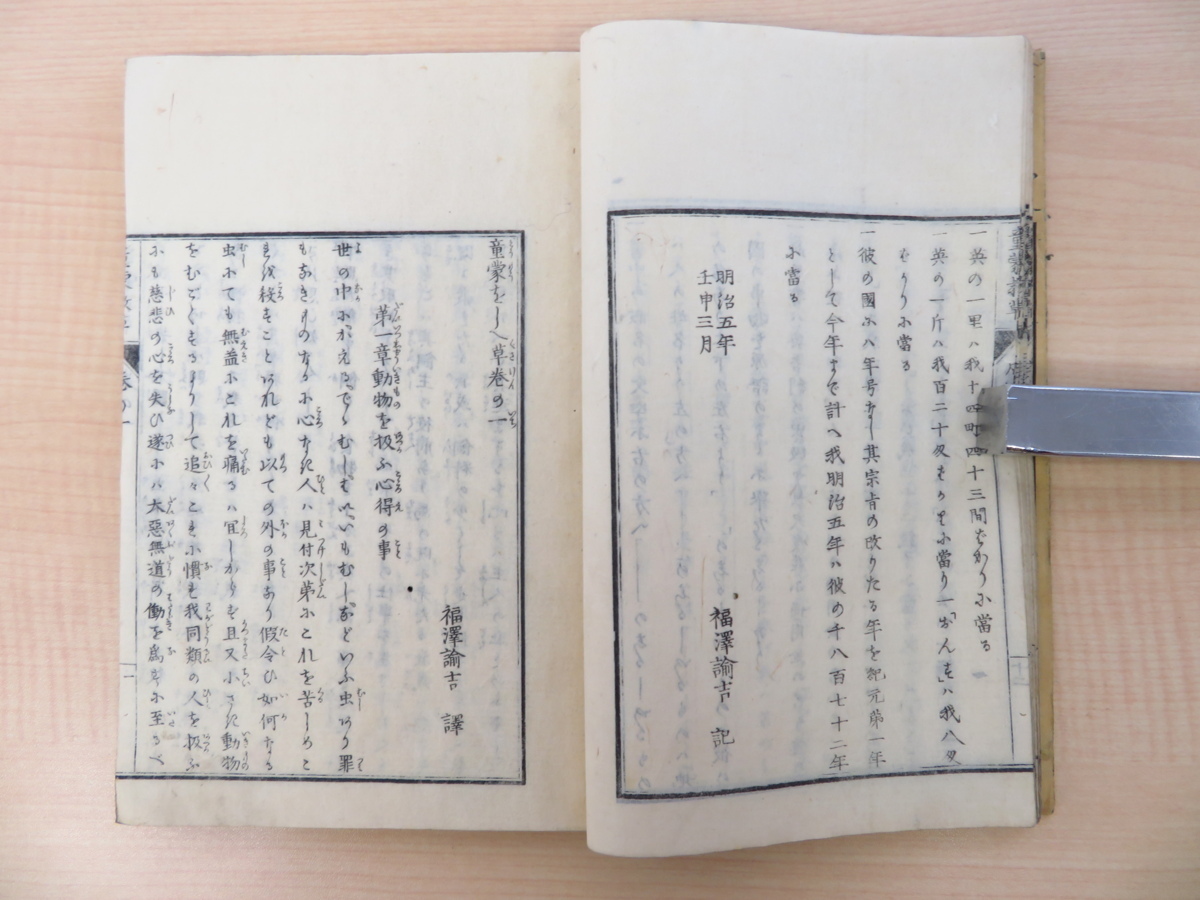 一英の一里ハ我十四町四十三間ばかりに當る
一英の一斤ハ我百二十匁ばかりに當り一「おんす」ハ我八匁
ばかりに當る
一彼の國にハ年号なし其宗旨の改りたる年を紀元第一年
として今年まで計へ我明治五年ハ彼の千八百七十二年
に當る
明治五年
壬申三月
福澤諭吉 記
童蒙をしへ草巻の一
福澤諭吉 譯
第一章動物を扱ふ心得の事
世の中にかえるでゝむしむいもむしなどいふ虫あり罪
もなきものなるに心なき人ハ見付次第にこれを苦しめこ
れを殺すことあれども以ての外の事なり假令ひ如何なる
虫にても無益にこれを痛るハ宜しからず且又小さき動物
をむごくするよりして追々これに慣れ我同類の人を扱ふ
にも慈悲の心を失ひ遂にハ大惡無道の働を為すに至るべ
巻の一